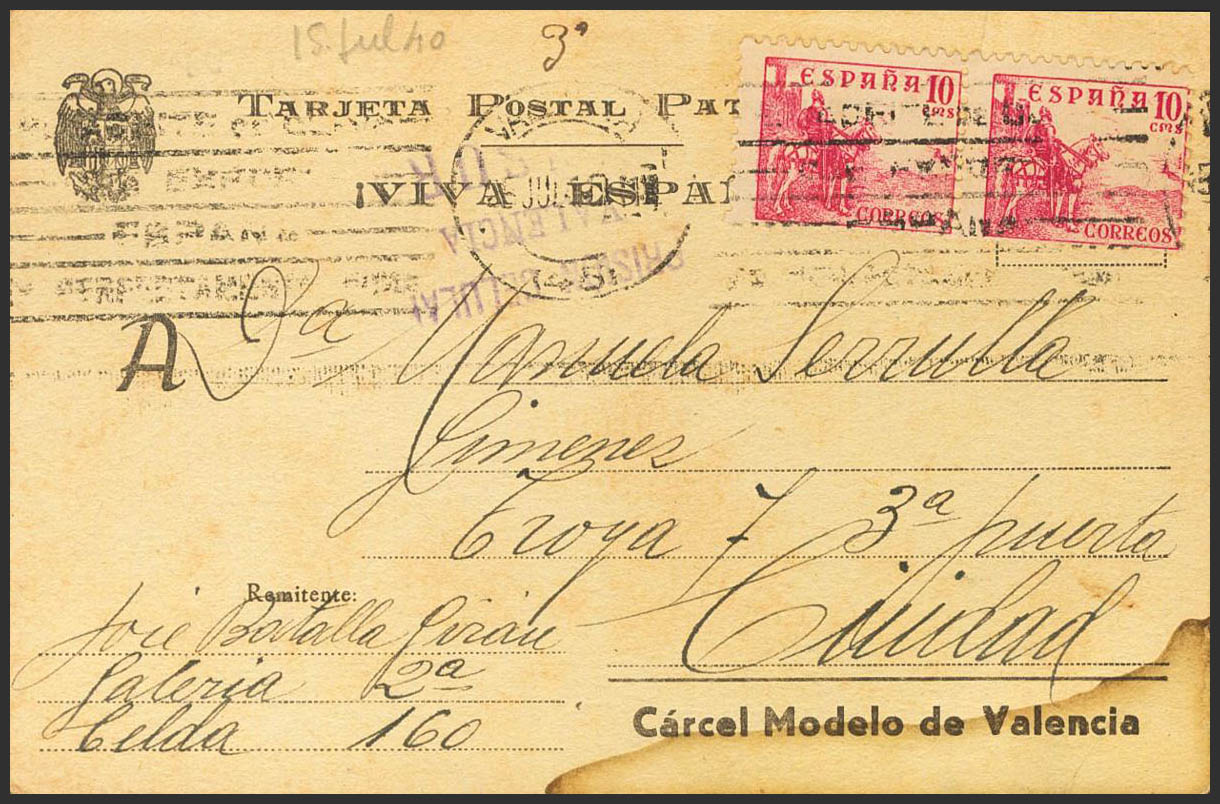 15 Jul 40
3ª
TARJETA POSTAL PAT
¡VIVA ESPAÑ
ESPAÑA 10 cms
CORREOS
ESPAÑA 10 cms
CORREOS
JUL
VALENCIA
PRISION CELULAR
ESPAÑA
A Dª Manuela Serrulla
Gimenez
Troya 7 3ª puerta
Ciudad
Remitente:
José Batalla Girón
Galeria 2ª
Celda 160
Cárcel Modelo de Valencia